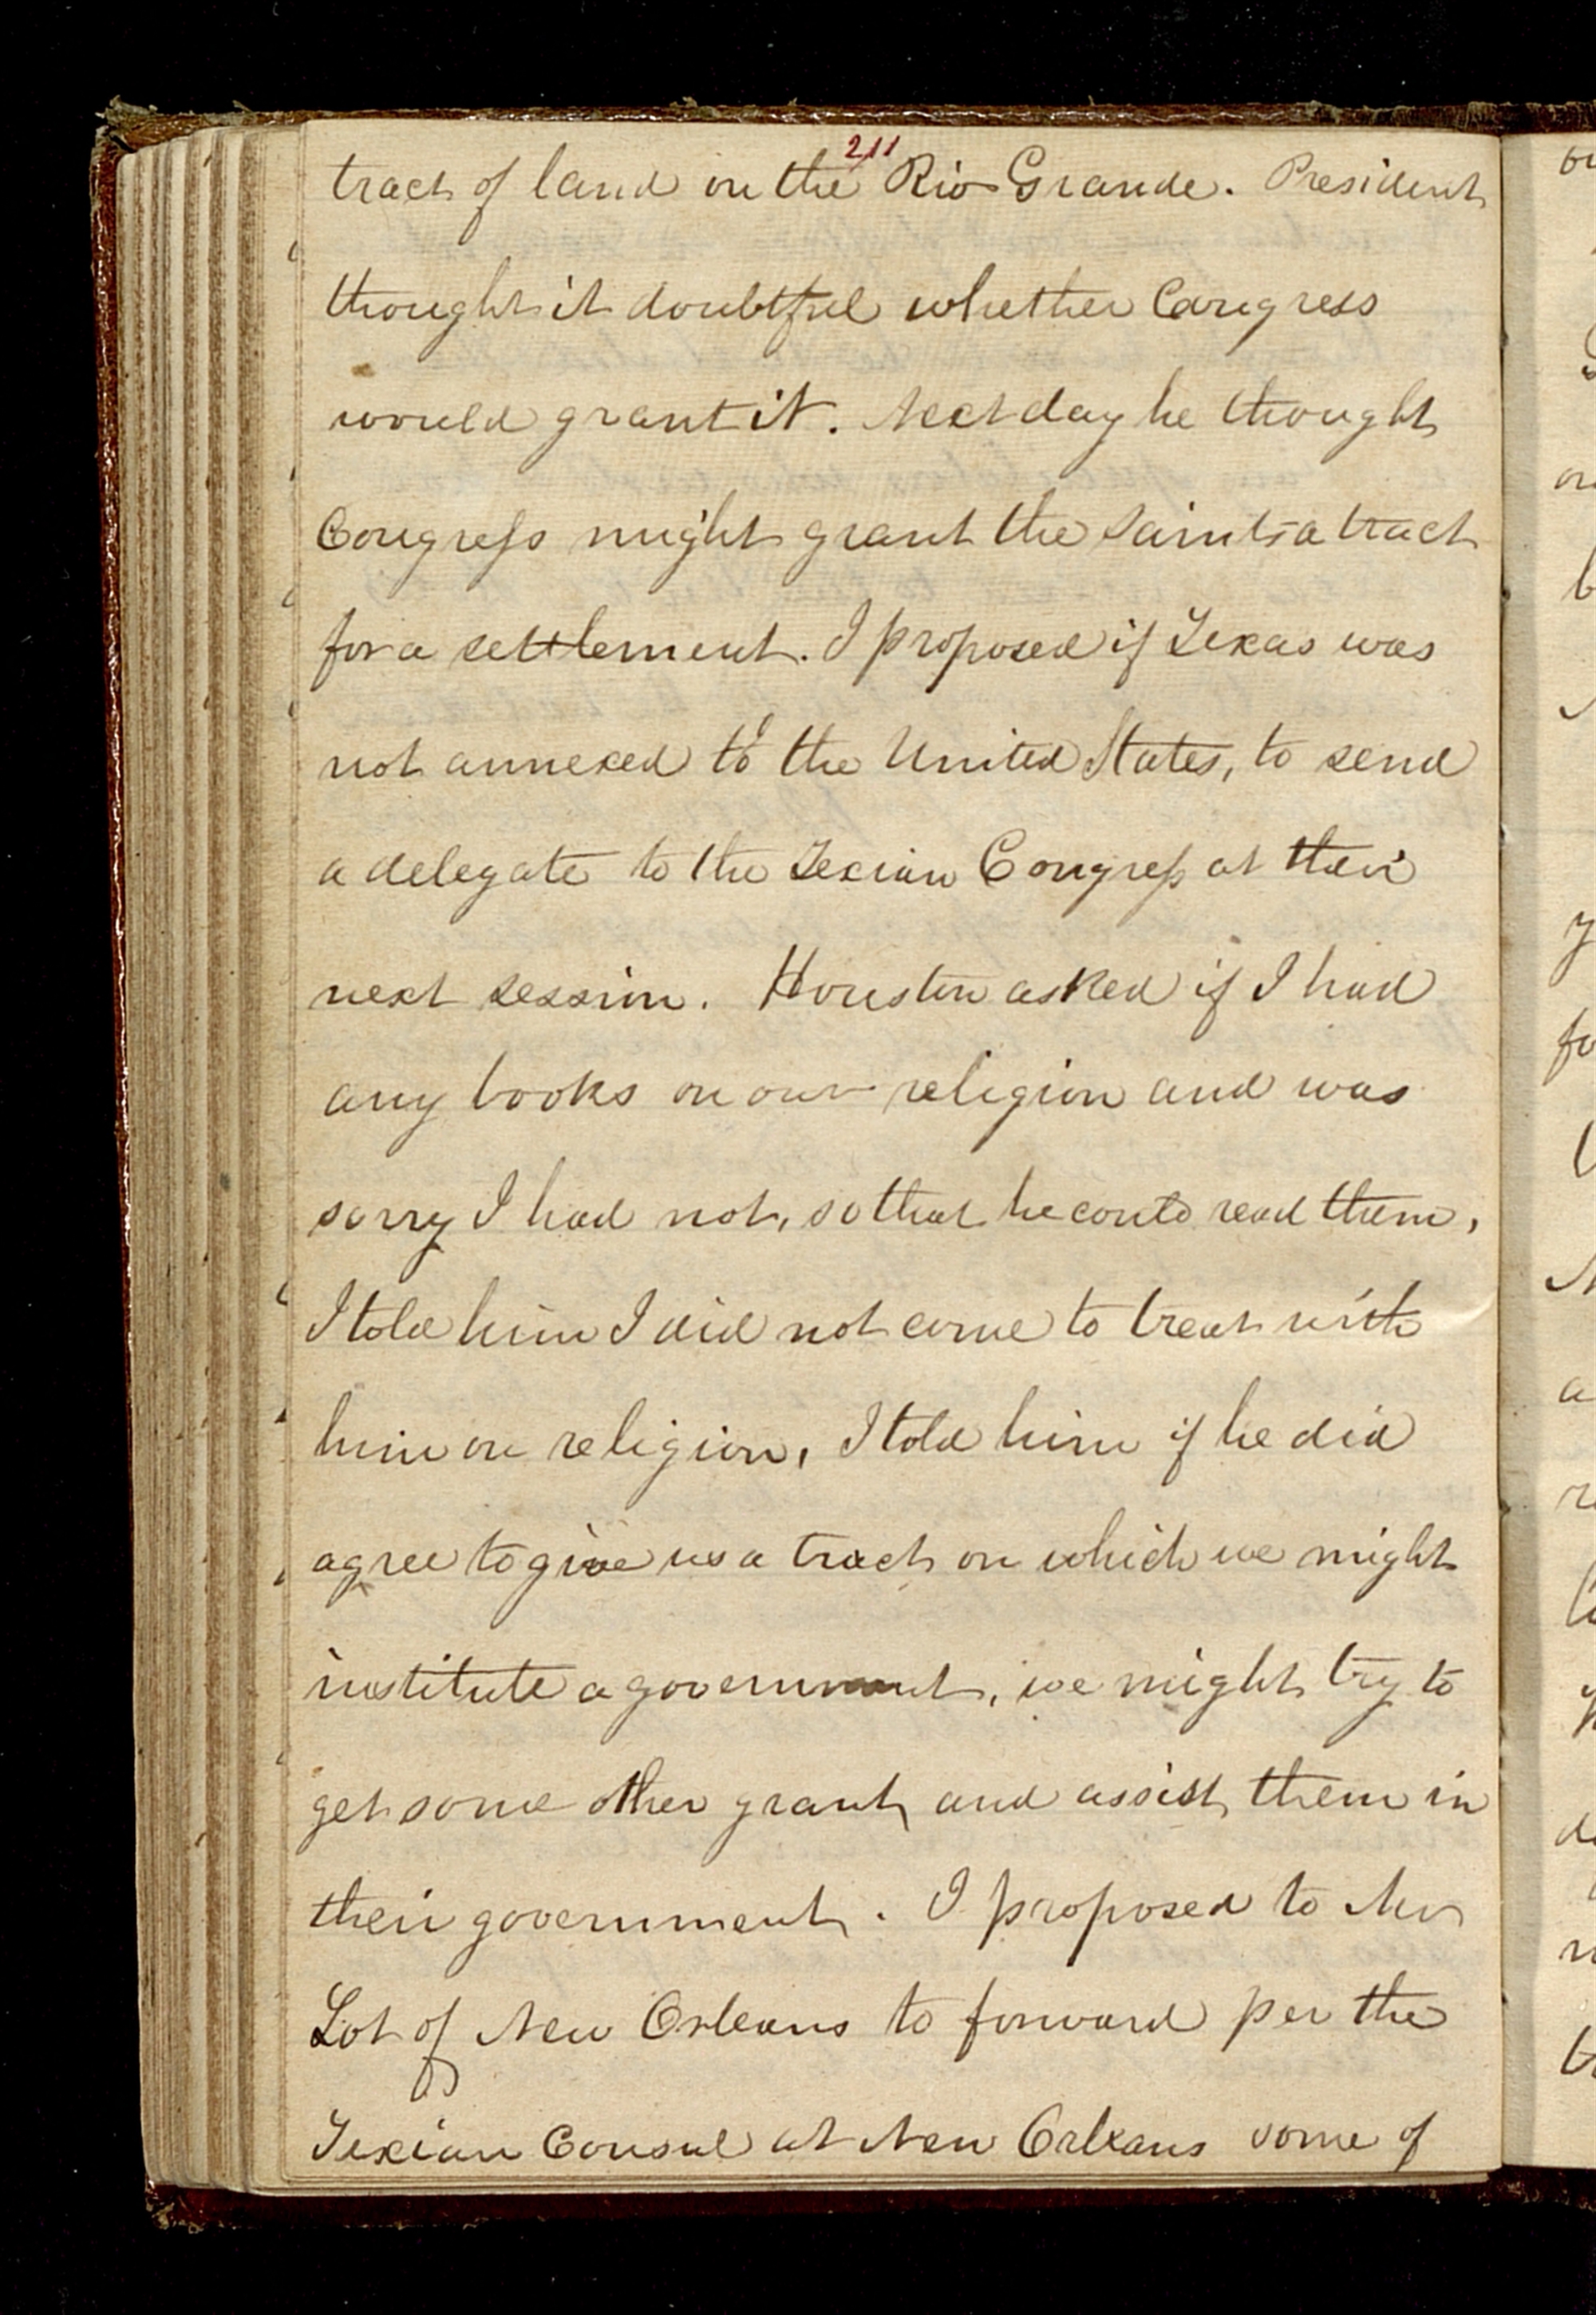 211
tract of land on the Rio Grande. President
thought it doubtful whether Congress
would grant it. Next day he thought
Congress might grant the Saints a tract
for a settlement. I proposed if Texas was
not annexed to the United States, to send
a delegate to the Texian Congress at their
next session. Houston asked if I had
any books on our religion and was
sorry I had not, so that he could read them,
I told him I did not come to treat with
him on religion, I told him if he did
agree to give us a tract on which we might
institute a government, we might try to
get some other grant and assist them in
their government. I proposed to Mr
Lot of New Orleans to forward per the
Texian Consul at New Orleans some of